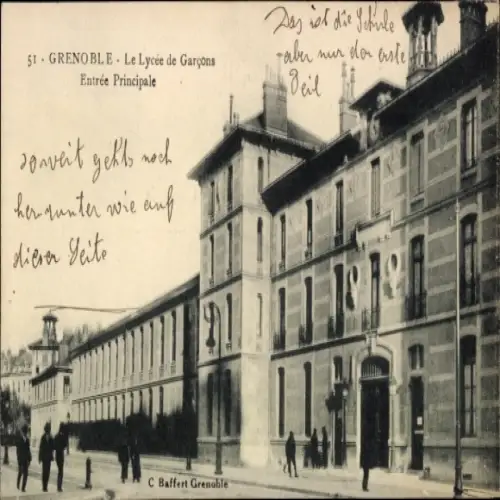 Das ist die Schule
aber nur der erste
Teil
51 - GRENOBLE - Le Lycée de Garçons
Entrée Principale
soweit gehts noch
herunter wie auf
dieser Seite
C Baffert Grenoble